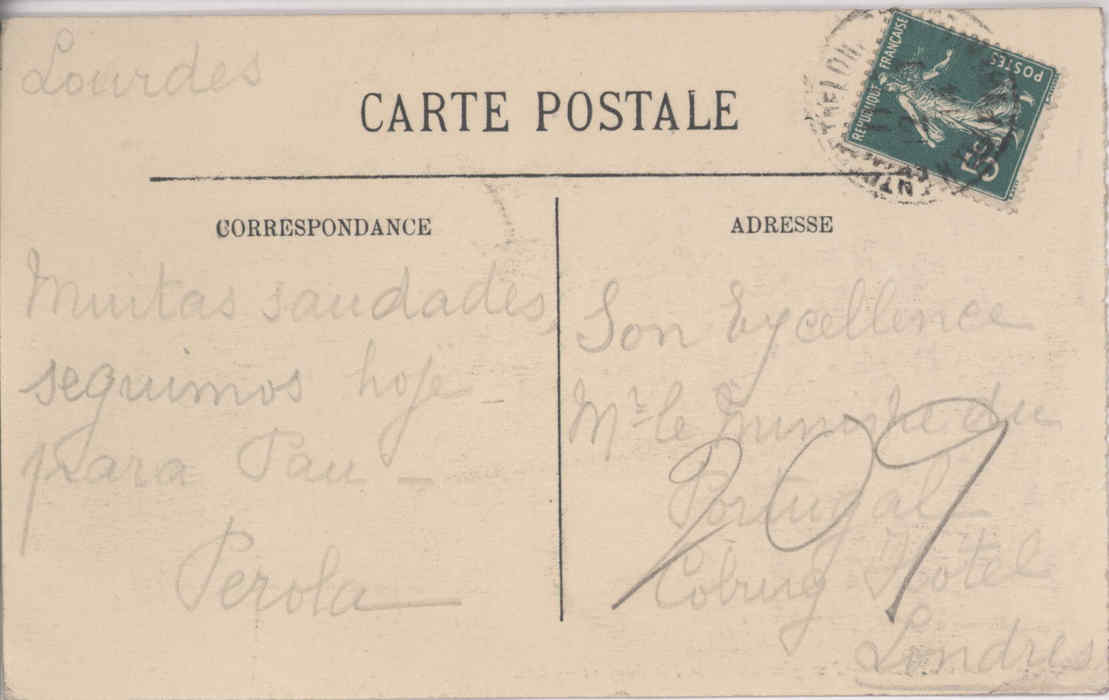 Lourdes
CARTE POSTALE
REPUBLIQUE FRANÇAISE
POSTES
5
CORRESPONDANCE
Muitas saudades,
seguimos hoje
para Pau —
Perola
ADRESSE
Son Excellence
Mr. le Ministre du
Portugal
Coburg Hotel
Londres
209